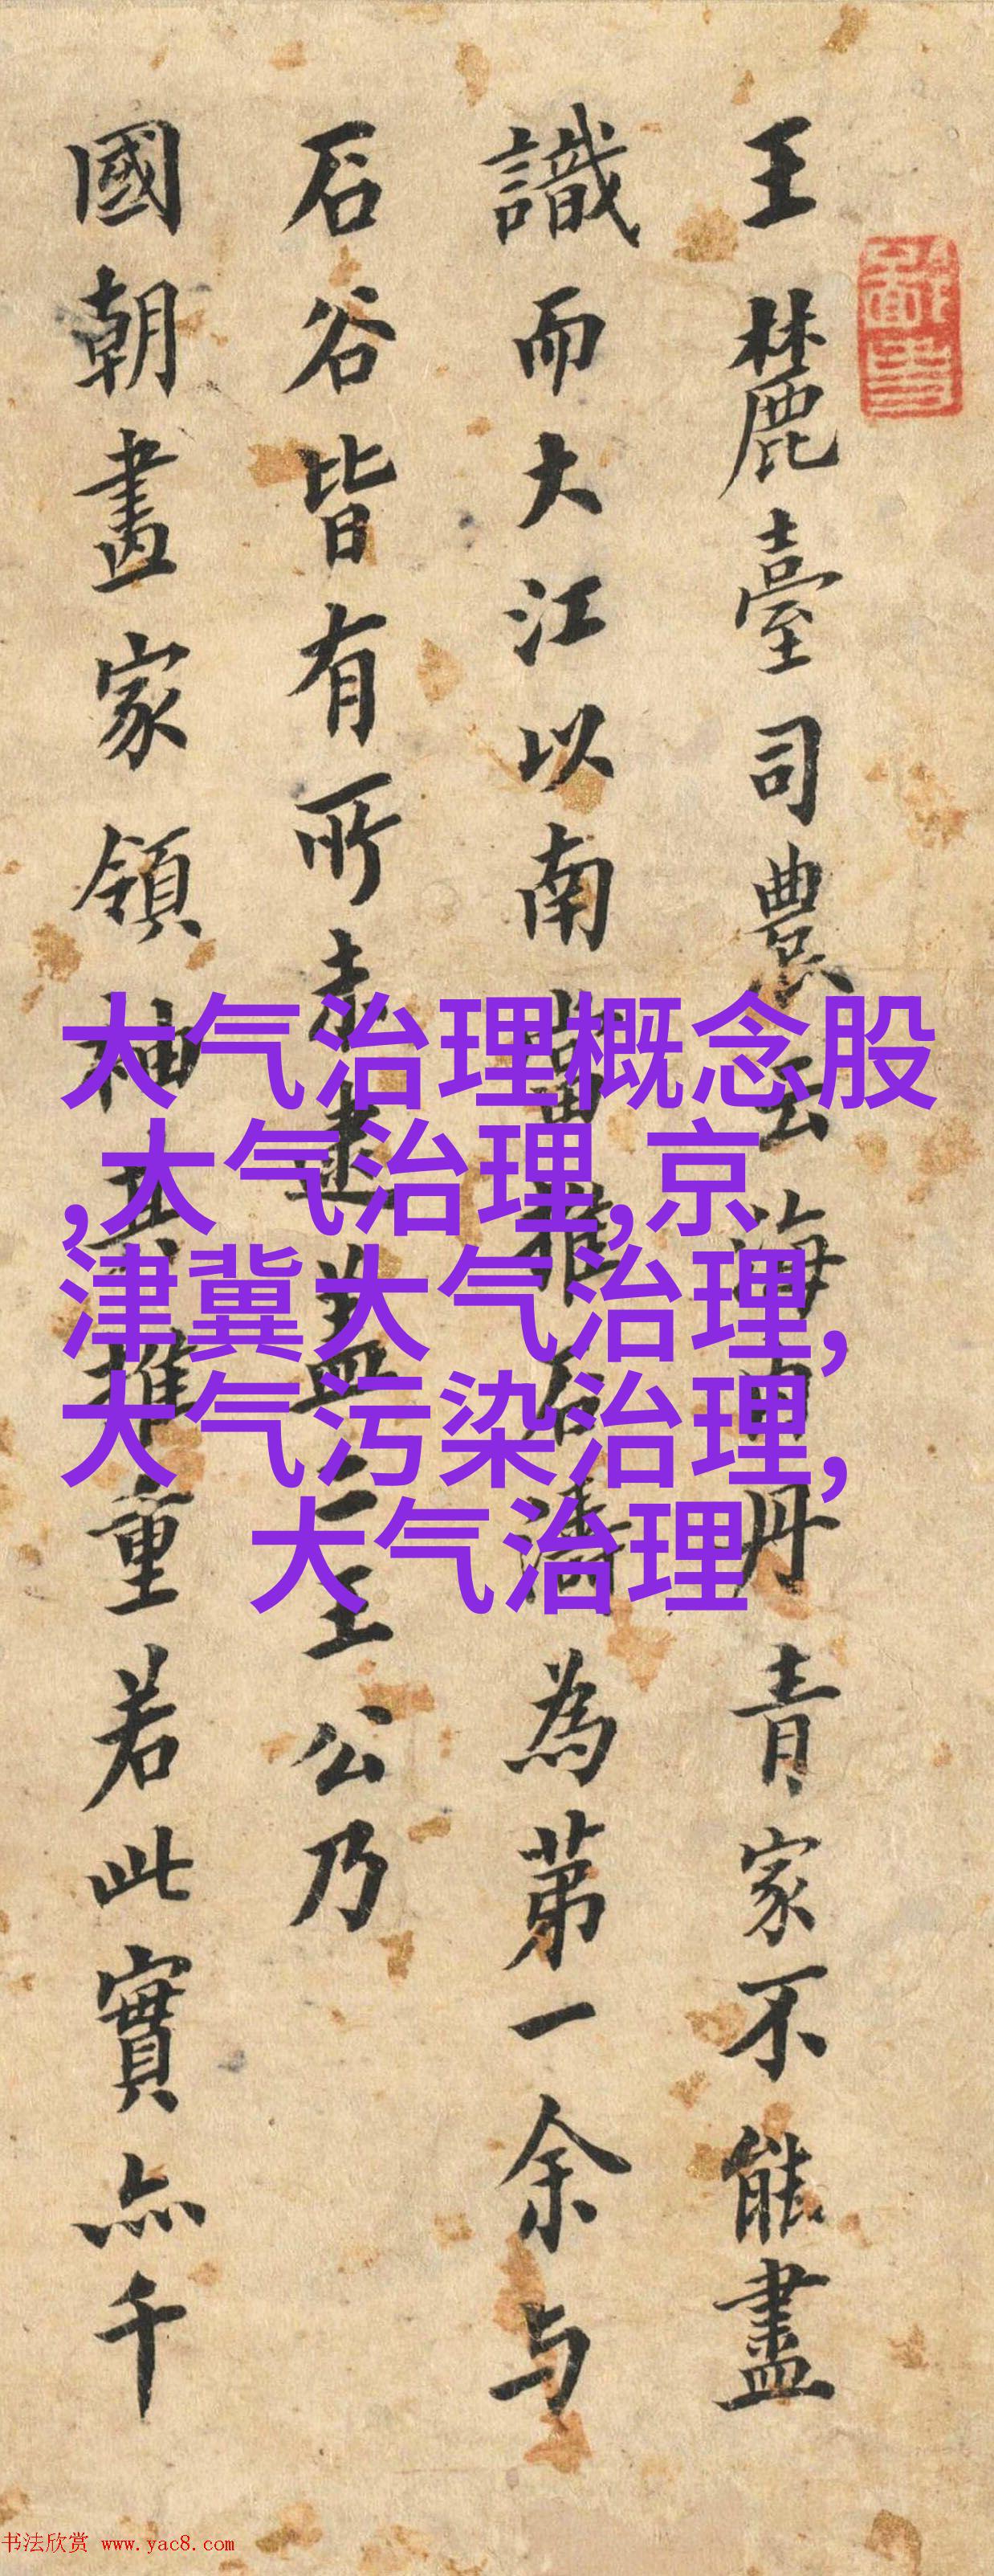 王麓臺司農云海內丹青家不能盡
識而大江以南當推石濤為第一余与
石谷皆有所未逮蓋二王公乃
國朝畫家領袖其推重若此實亦千
大气治理概念股
,大气治理,京
津冀大气治理,
大气污染治理,
大气治理
书法欣赏 www.yac8.com